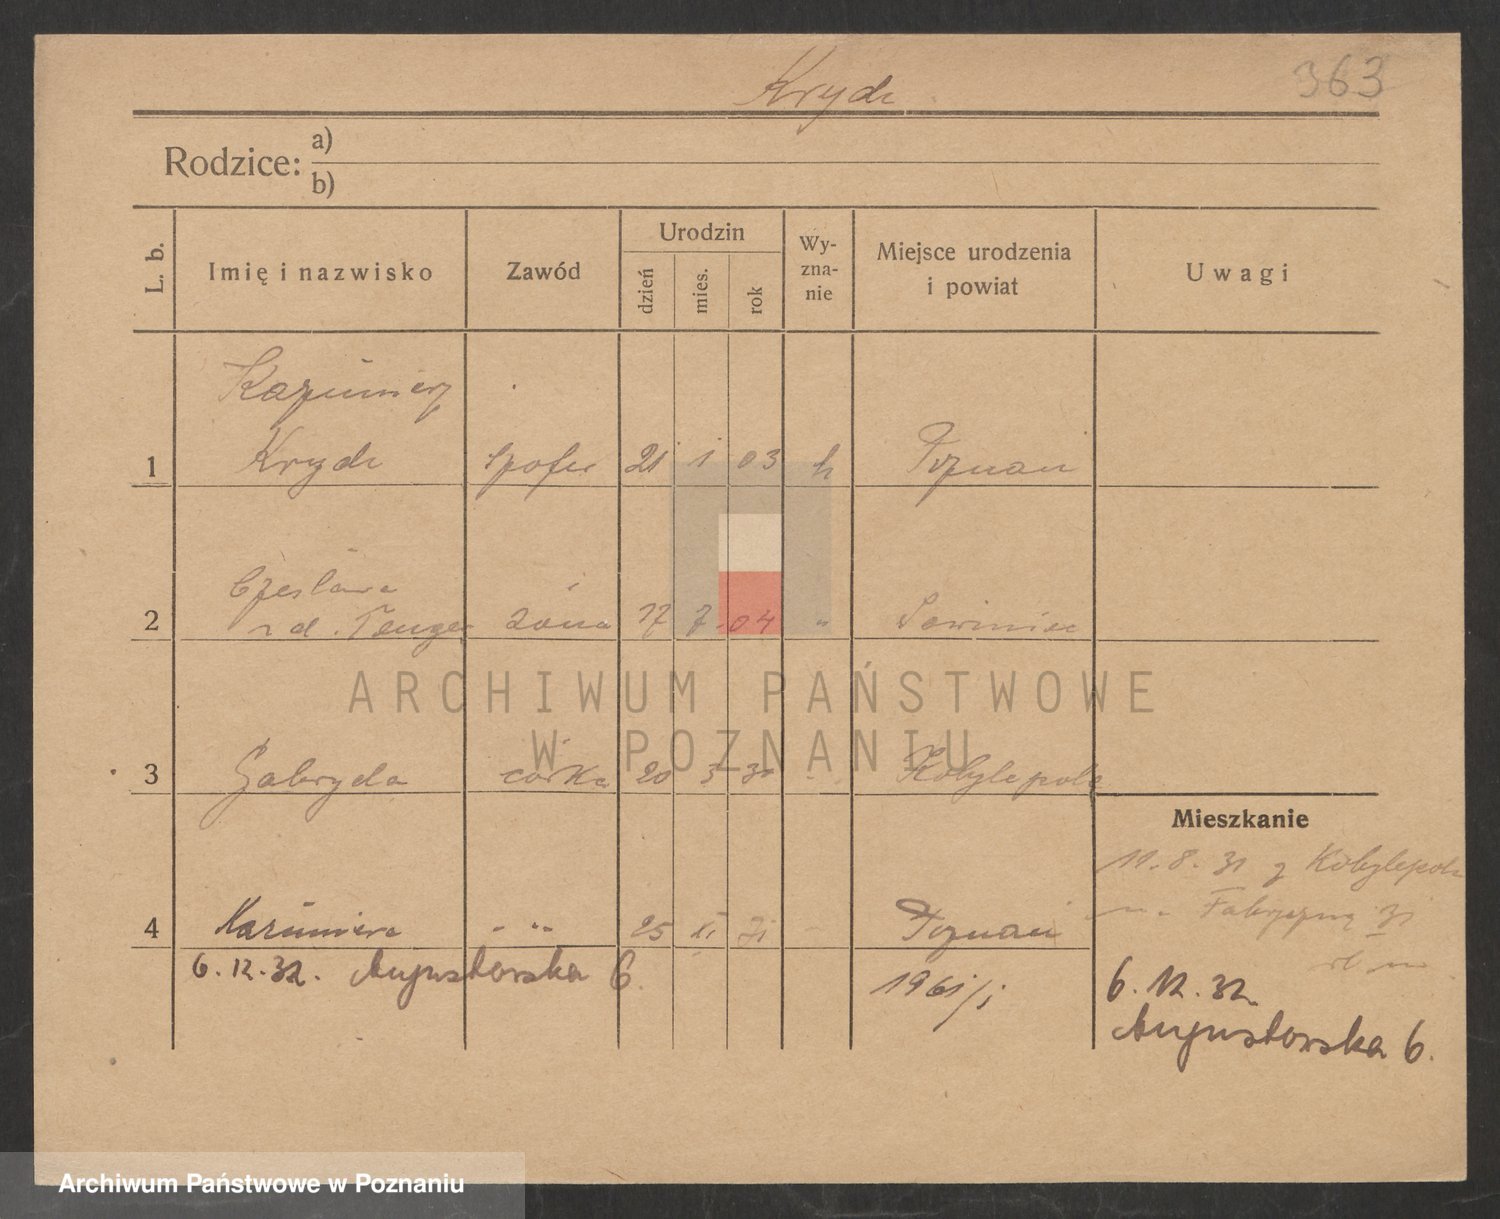 Krych
363
Rodzice: a)
b)
L. b.
Imię i nazwisko
Zawód
Urodzin
dzień
mies.
rok
Wy-
zna-
nie
Miejsce urodzenia
i powiat
Uwagi
Kazimierz
1 Krych szofer 21 1 03 k Poznań
Czesława
2 żona 17 7. 04 " Sowiniec
ARCHIWUM PAŃSTWOWE
W POZNANIU
3 córka 20 3 31 Kobylepole
Mieszkanie
11. 8. 31 z Kobylepola
4 Kazimiera " " 25 Poznań
Fabryczną 31
6. 12. 32. Augustowska 6.
1961/
6. 12. 32.
Augustowska 6.
Archiwum Państwowe w Poznaniu